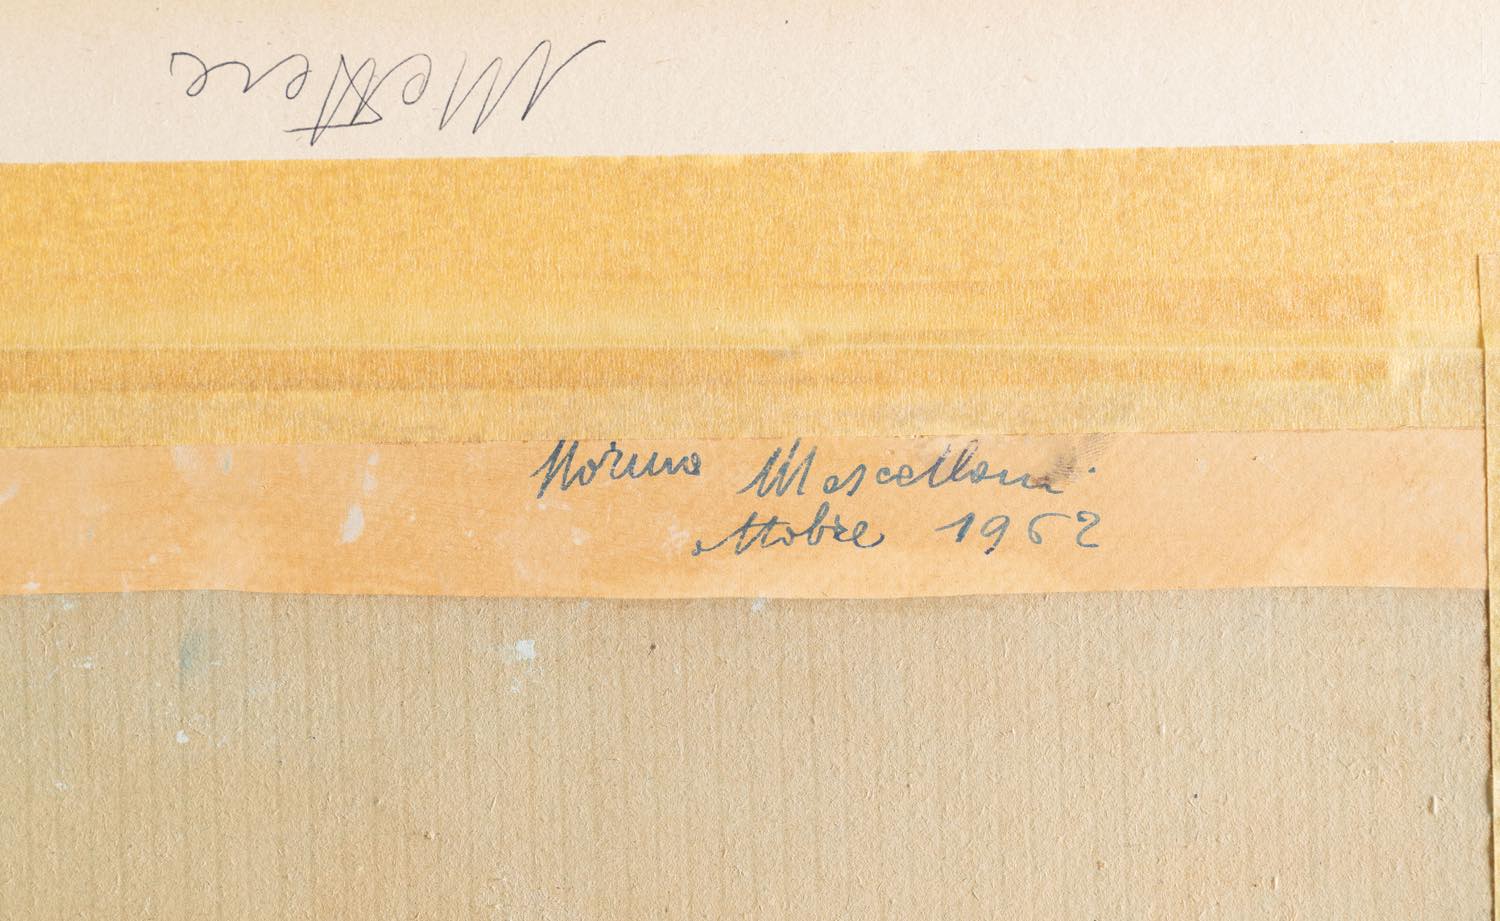 Mettere
Norma Mascellani
ottobre 1962